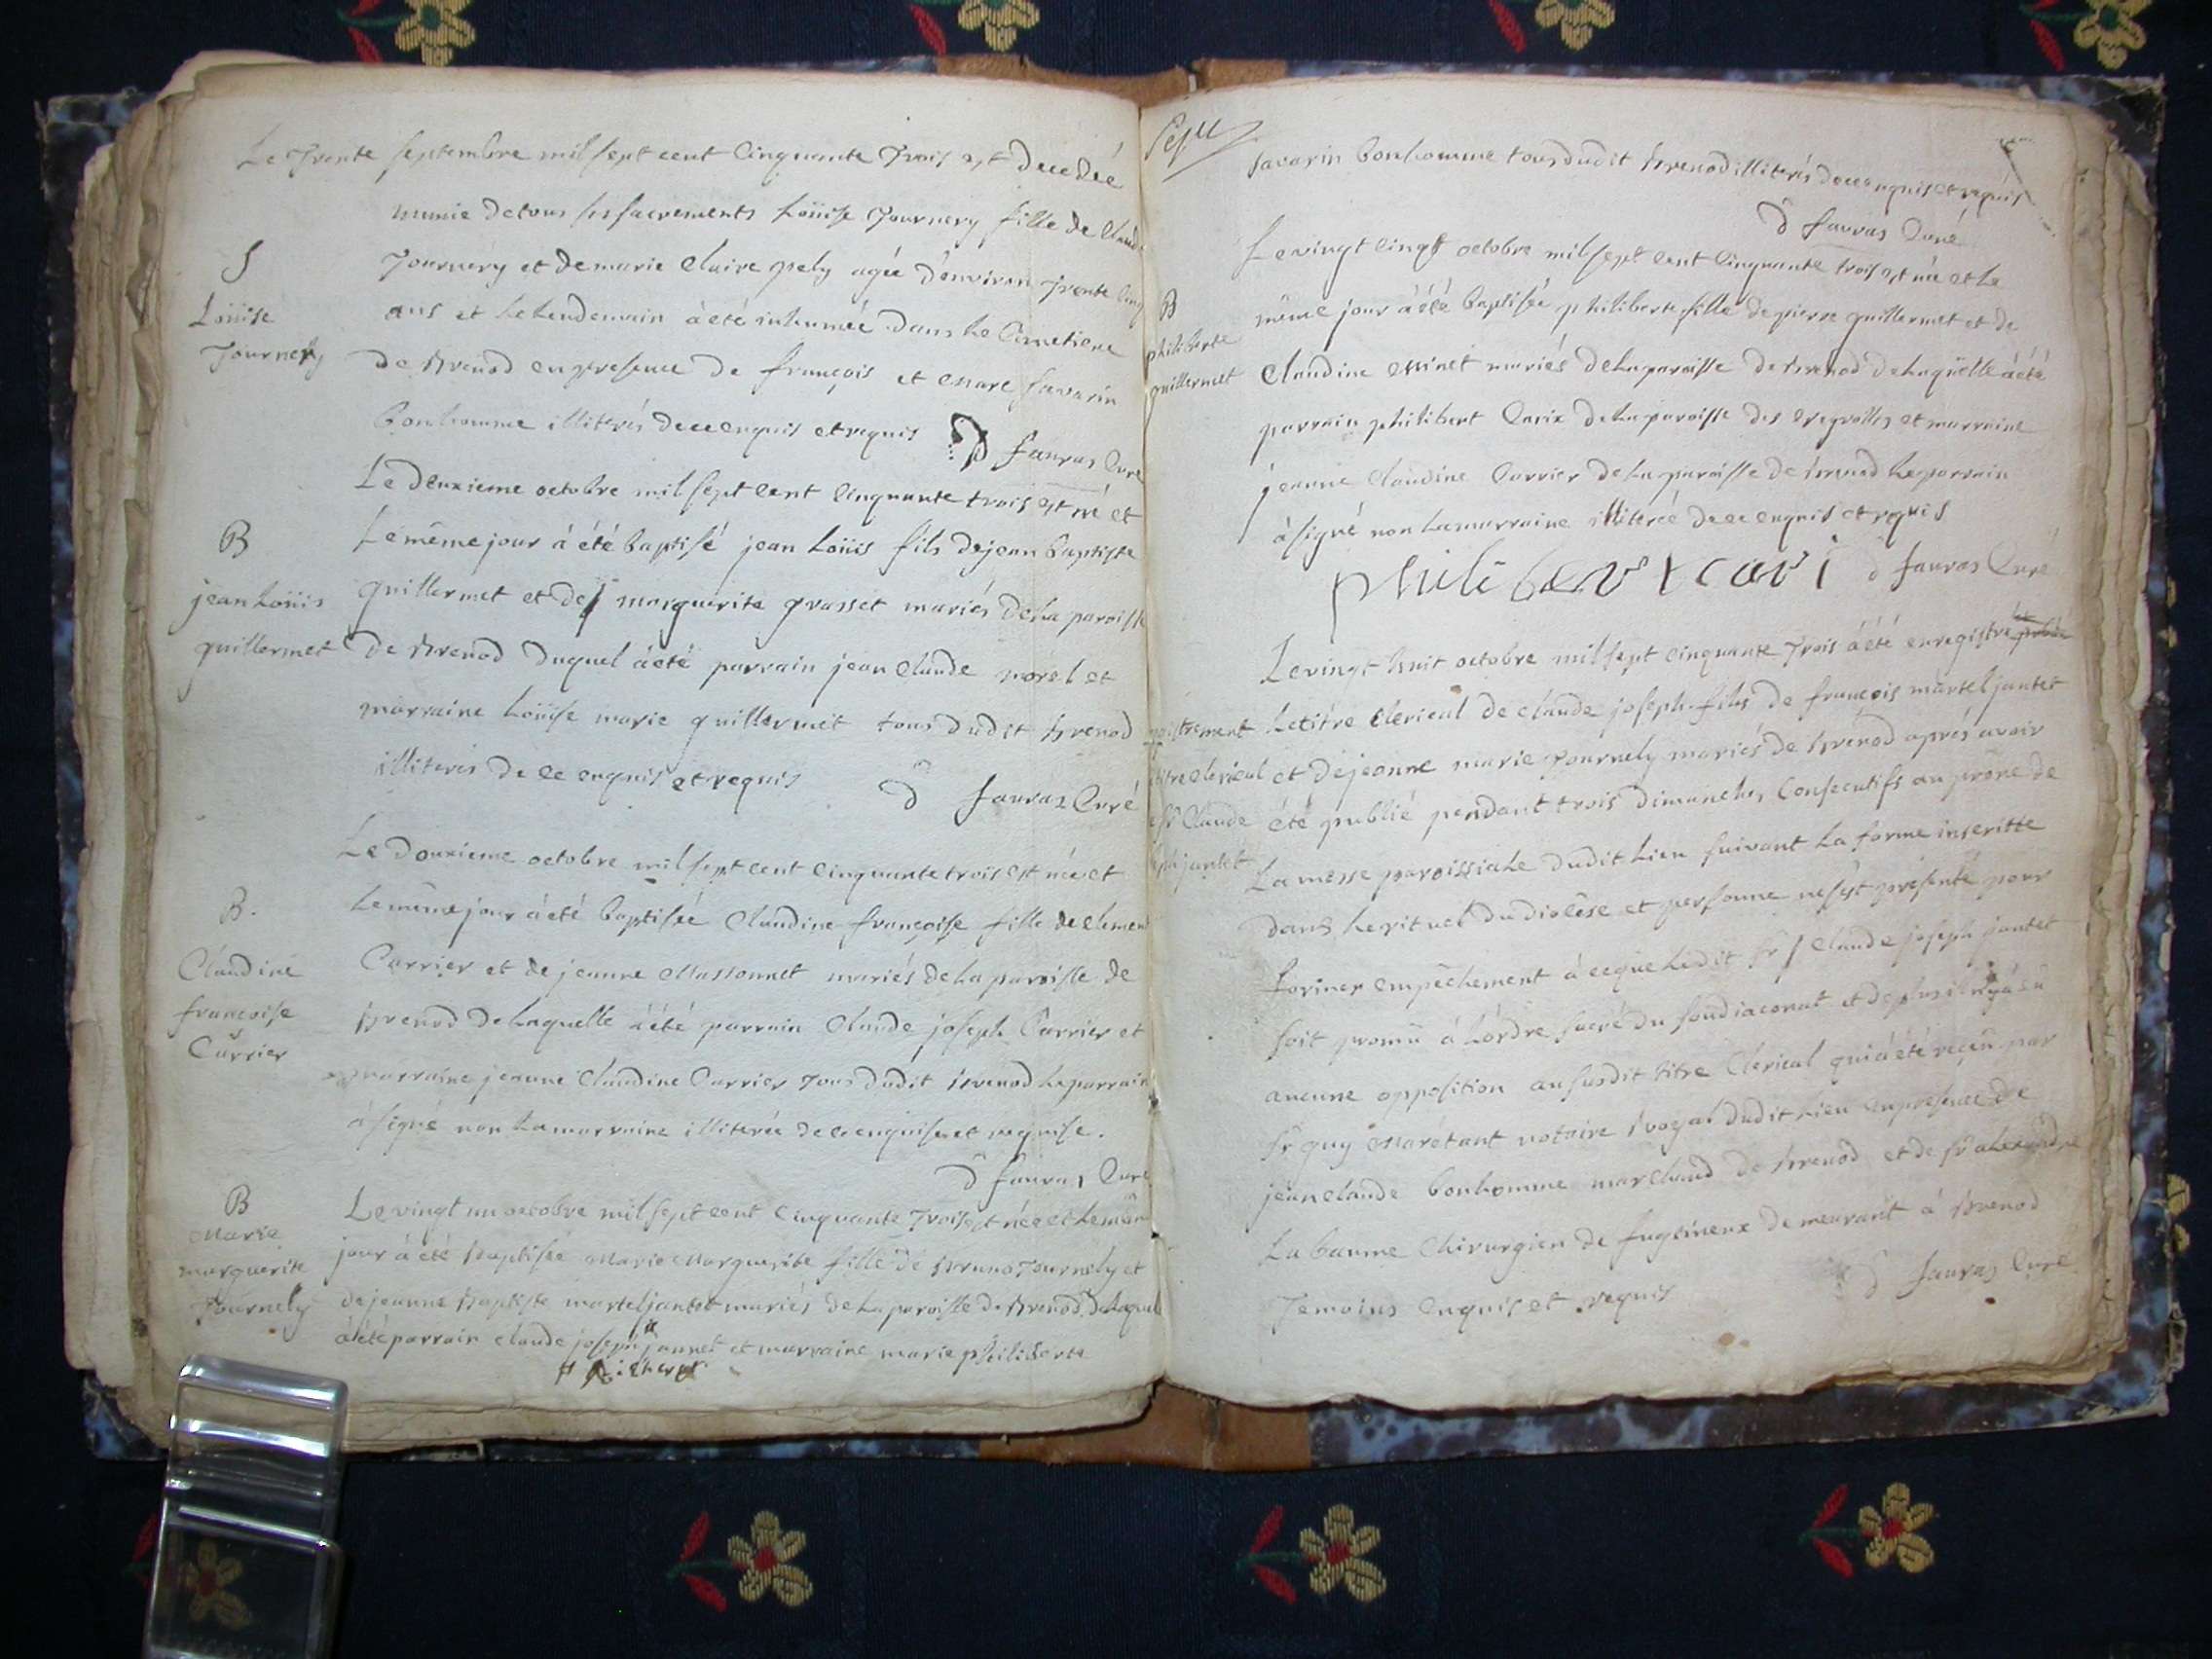 Le Trente septembre mil sept cent Cinquante Trois est decedée
munie de tous ses sacrements Loüise Tournery fille de Claude
S
Loüise
Tournery
Tournery et de marie Claire pely agée d'environ Trente Cinq
ans et le lendemain à été inhumée dans le Cimetiere
de Brenod en presence de françois et Marc savarin
Bonhomme illiterés de ce enquis et requis D favras Curé
B
jean Loüis
guillermet
Le deuxieme octobre mil sept cent Cinquante trois est né et
le même jour à été baptisé jean Loüis fils de jean baptiste
guillermet et de marguerite grasset mariés de la paroisse
de Brenod duquel à été parrain jean Claude morel et
marraine Loüise marie guillermet tous dudit Brenod
illiterés de ce enquis et requis D favras Curé
B.
Claudine
francoise
Carrier
Le douxieme octobre mil sept cent cinquante trois est née et
le même jour à été baptisée Claudine françoise fille de Clement
Carrier et de jeanne Massonnet mariés de la paroisse de
Brenod de laquelle à été parrain Claude joseph Carrier et
marraine jeanne Claudine Carrier Tous dudit Brenod le parrain
à signé non la marraine illiterée de ce enquise et requise.
D favras Curé
B
Marie
marguerite
Tournely
Le vingt un octobre mil sept cent Cinquante Trois est née et le même
jour à été Baptisée Marie Marguerite fille de Bruno Tournely et
de jeanne Baptiste martel jantet mariés de la paroisse de Brenod de laquel
à été parrain claude joseph jannet et marraine marie philiberte
savarin bonhomme tous dudit Brenod illiterés de ce enquis et requis
D favras Curé
B
philiberte
guillermet
Le vingt cinq octobre mil sept cent Cinquante trois est née et le
même jour à été baptisée philiberte fille de pierre guillermet et de
Claudine Minet mariés de la paroisse de Brenod de laquelle à été
parrain philibert Carix de la paroisse des et marraine
jeanne Claudine Carrier de la paroisse de Brenod le parrain
à signé non la marraine illiterée de ce enquis et requis
philibert cari D favras Curé
Le vingt huit octobre mil sept cinquante Trois à été enregistré et
le titre Clerical de claude joseph fils de françois martel jantet
titre clerical
Claude
jantet
et de jeanne marie Tournely mariés de Brenod aprés avoir
été publié pendant trois dimanches Consecutifs au prône de
La messe paroissiale dudit Lieu suivant La forme inscritte
dans le rituel du diocêse et personne ne s'est présenté pour
former empêchement à ce que ledit Sr Claude joseph jantet
soit promû á l'ordre sacré du soudiaconat et de plus il n'y á eû
aucune opposition au susdit titre Clerical qui á été reçeû par
Sr guy Marétant notaire Royal dudit Lieu en presence de
jean claude bonhomme marchand de Brenod et de Sr alexandre
La baume Chirurgien de demeurant á Brenod
Temoins enquis et requis D favras Curé